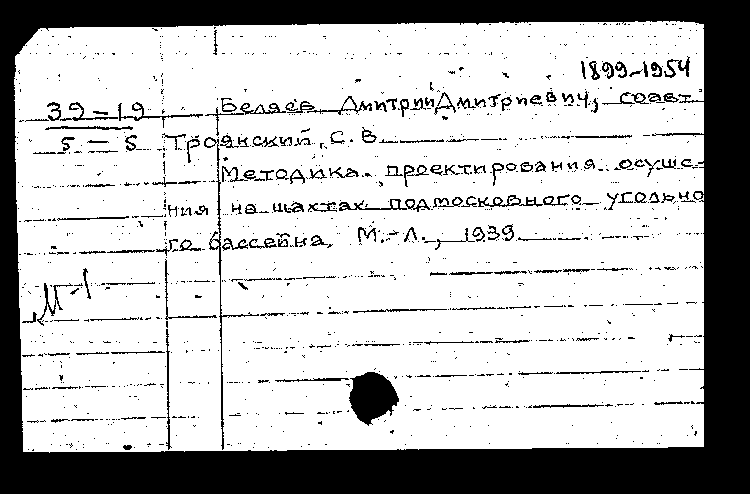 1899-1954
39-19 Беляев Дмитрий Дмитриевич, соавт.
5-5 Троянский, С. В.
Методика проектирования осуше-
ния на шахтах подмосковного угольно
го бассейна, М.-Л., 1939
М-1